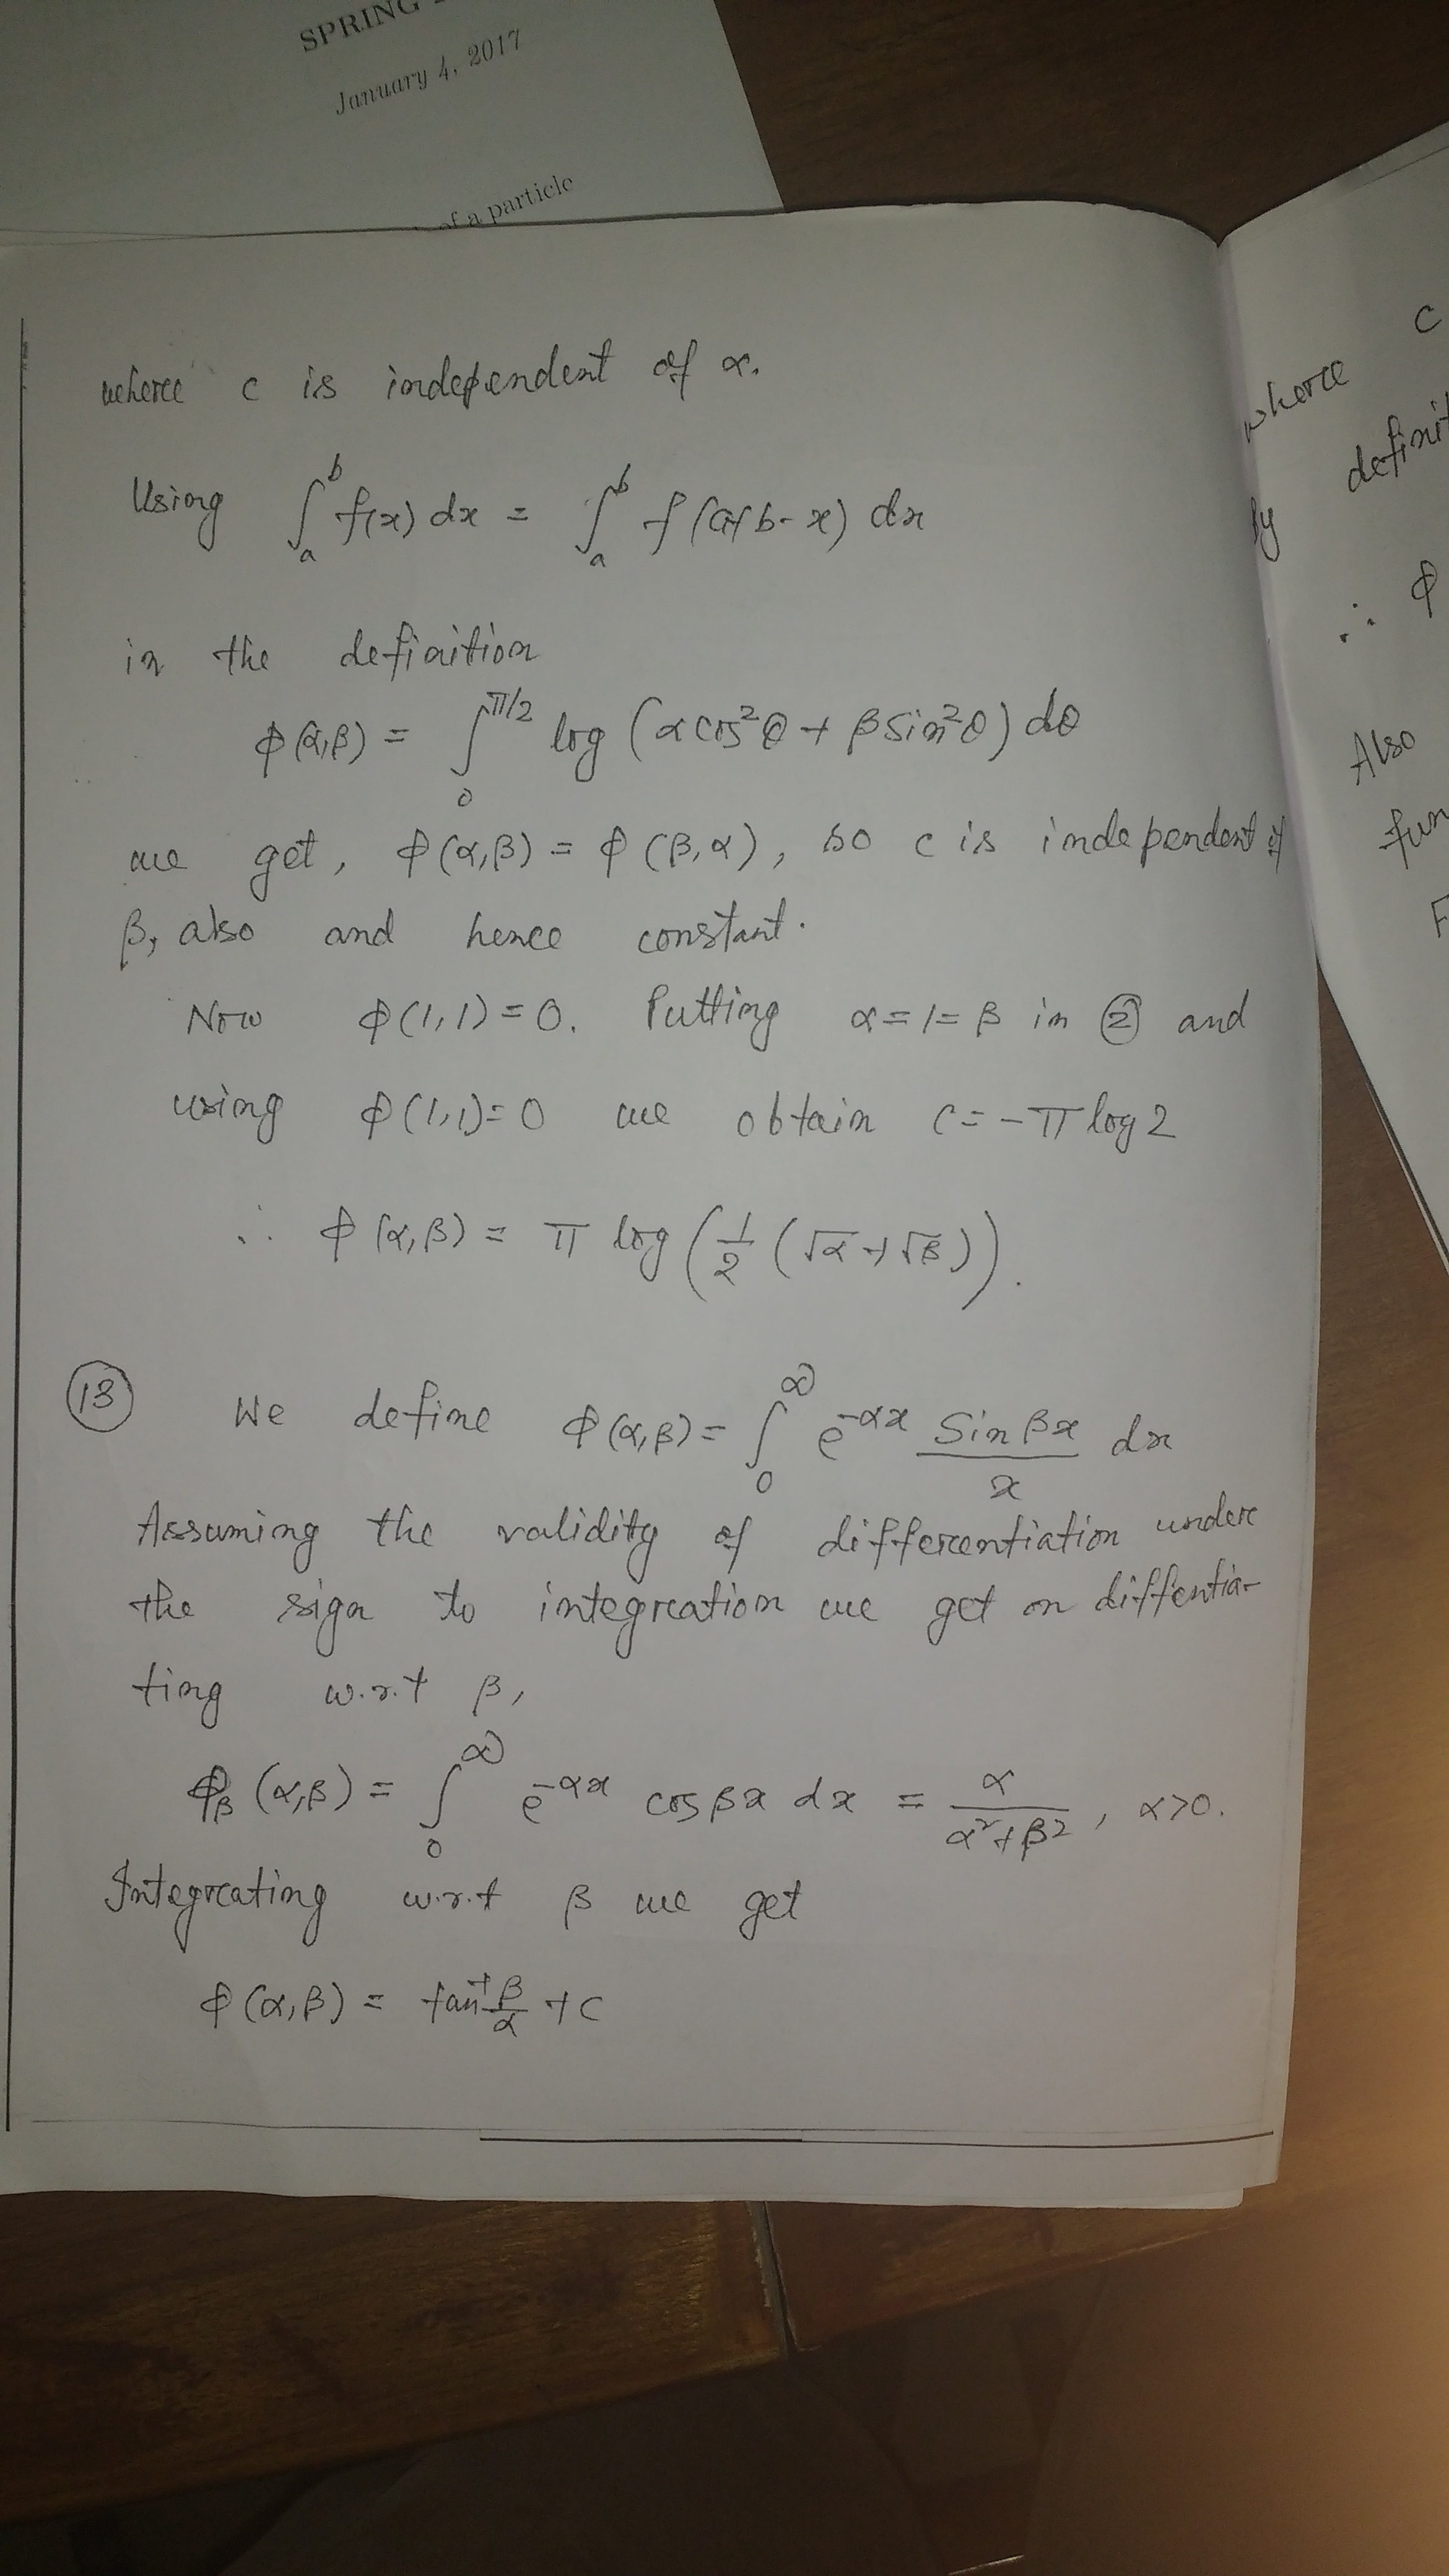 SPRING
January 4, 2017
of a particle
where c is independent of α.
Using ∫_a^b f(x) dx = ∫_a^b f(a+b-x) dx
in the definition
ϕ(α,β) = ∫_0^{π/2} log (α cos²θ + β sin²θ) dθ
we get, ϕ(α,β) = ϕ(β,α), so c is independent of
β, also and hence constant.
Now ϕ(1,1)=0. Putting α=1=β in ② and
using ϕ(1,1)=0 we obtain c=-π log 2
∴ ϕ(α,β) = π log(1/2 (√α+√β)).
⑬ We define ϕ(α,β) = ∫_0^∞ e^{-αx} Sin βx / x dx
Assuming the validity of differentiation under
the sign to integration we get on diffentia-
ting w.r.t β,
ϕ_β (α,β) = ∫_0^∞ e^{-αx} cos βx dx = α / α²+β², α>0.
Integrating w.r.t β we get
ϕ(α,β) = tan⁻¹ β/α + c
where c
definit
By
∴ ϕ
Also
fun
F